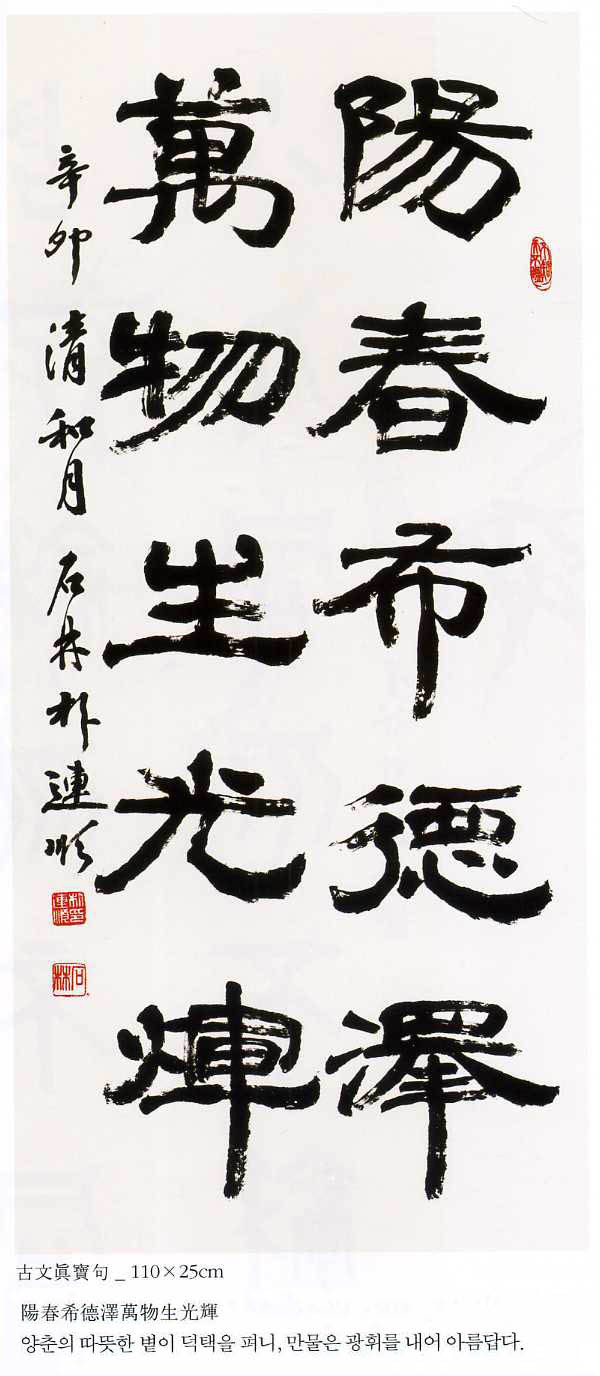 陽春布德澤
萬物生光煇
辛卯清和月 石林朴連順
朴印連順
石林
古文眞寶句 _ 110×25cm
陽春希德澤萬物生光輝
양춘의 따뜻한 볕이 덕택을 펴니, 만물은 광휘를 내어 아름답다.